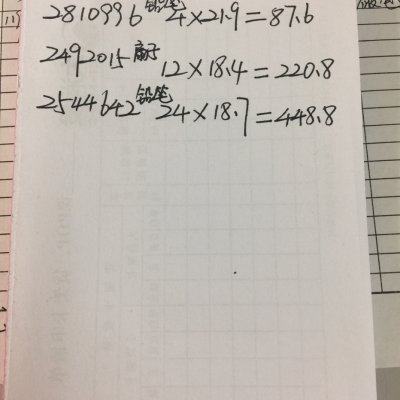 2810996铅笔 4×21.9=87.6
2492015 12×18.4=220.8
2544642铅笔 24×18.7=448.8